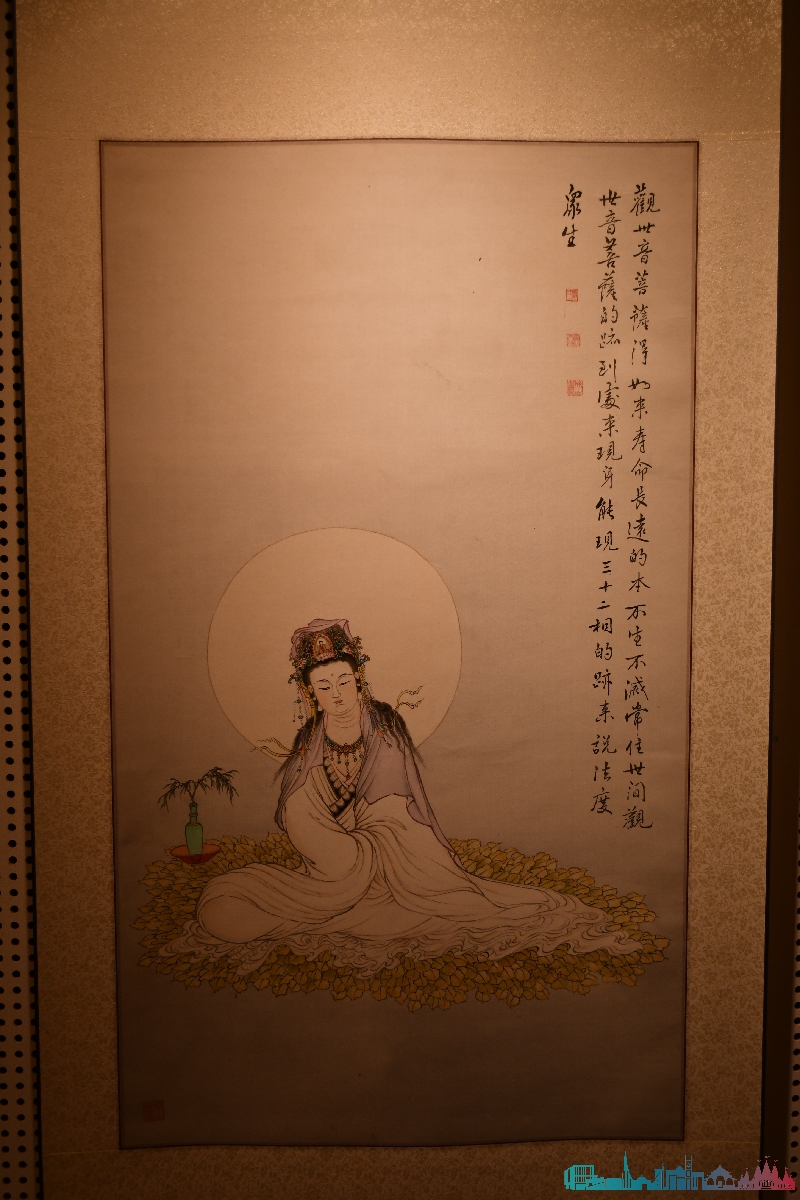 觀世音菩薩得如来寿命長遠的本不生不滅常住世间觀
世音菩薩的跡到處来現身能現三十二相的跡来説法度
衆生